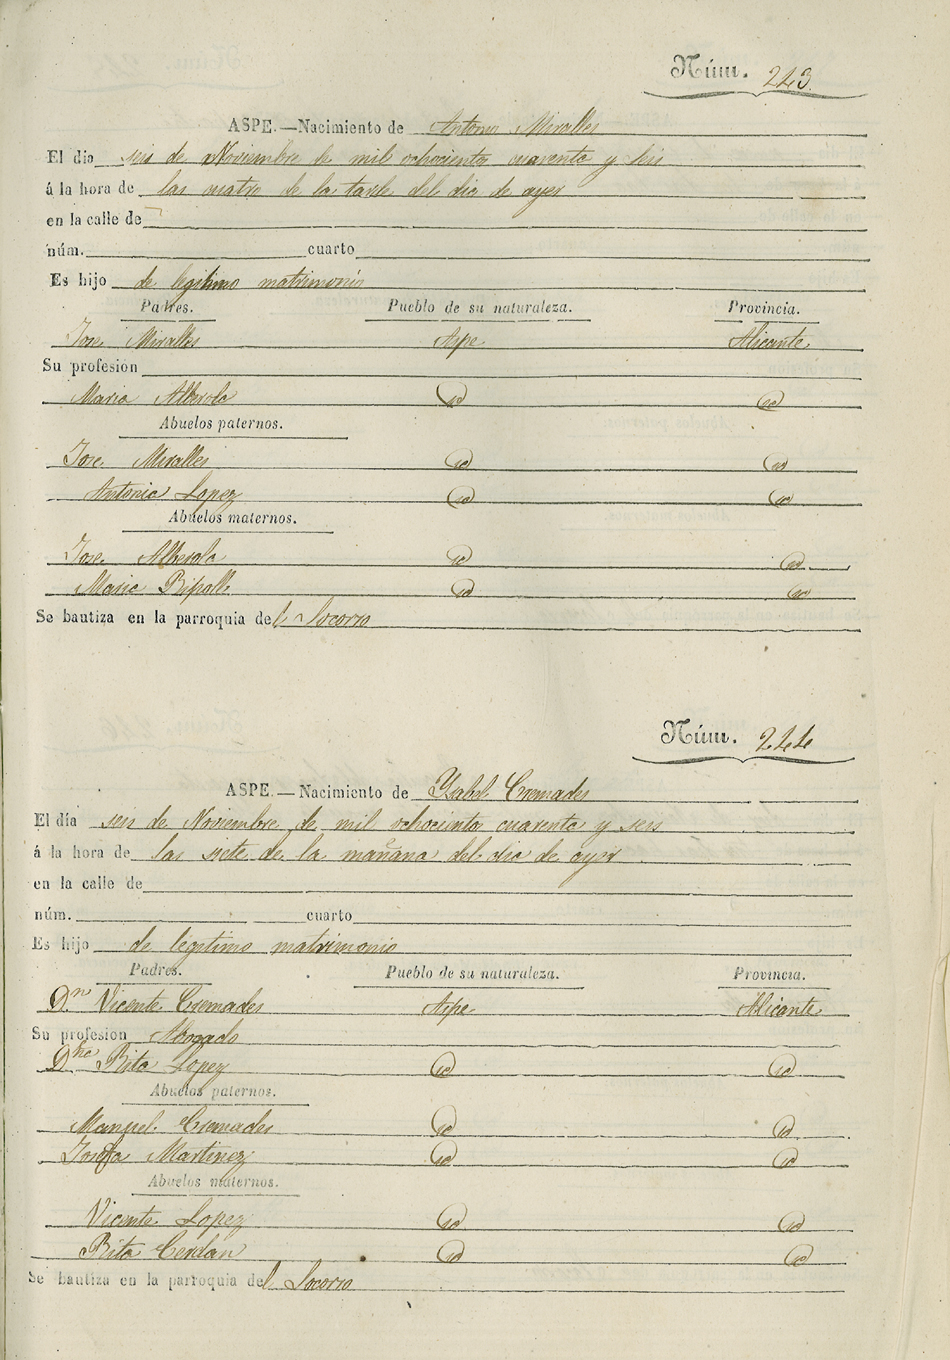 Núm. 243
ASPE.—Nacimiento de Antonio Miralles
El dia seis de Noviembre de mil ochocientos cuarenta y seis
á la hora de las cuatro de la tarde del dia de ayer
en la calle de
núm. cuarto
Es hijo de legitimo matrimonio
Padres. Pueblo de su naturaleza. Provincia.
Jose Miralles Aspe Alicante
Su profesion
Maria Alberola id id
Abuelos paternos.
Jose Miralles id id
Antonia Lopez id id
Abuelos maternos.
Jose Alberola id id
Maria Ripoll id id
Se bautiza en la parroquia del Socorro
Núm. 244
ASPE.—Nacimiento de Ysabel Cremades
El día seis de Noviembre de mil ochocientos cuarenta y seis
á la hora de las siete de la mañana del dia de ayer
en la calle de
núm. cuarto
Es hijo de legitimo matrimonio
Padres. Pueblo de su naturaleza. Provincia.
Dn Vicente Cremades Aspe Alicante
Su profesion Abogado
Dña Rita Lopez id id
Abuelos paternos.
Manuel Cremades id id
Josefa Martinez id id
Abuelos maternos.
Vicente Lopez id id
Rita Cerdan id id
Se bautiza en la parroquia del Socorro